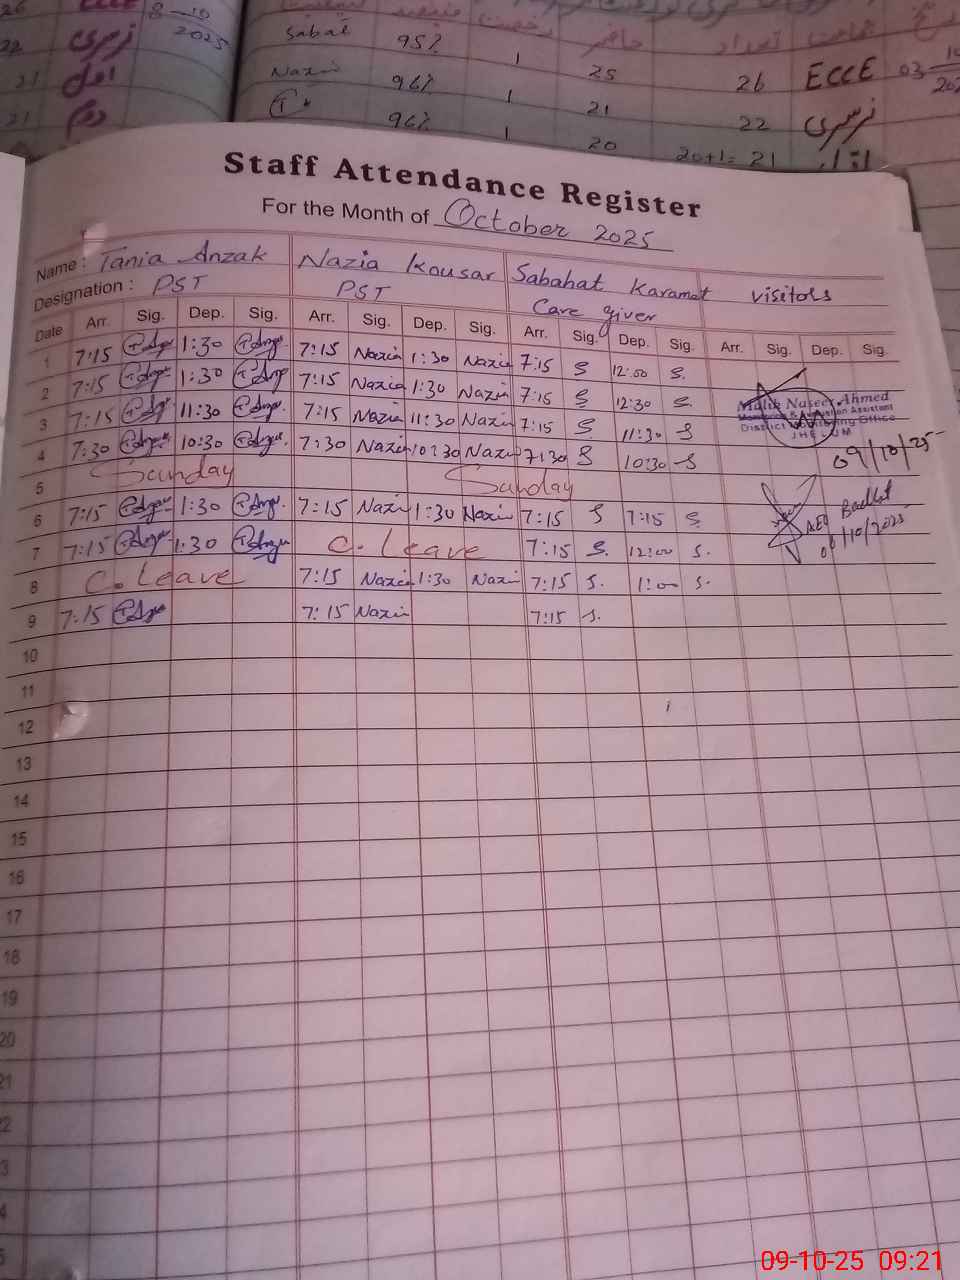 26 8-10
22 نرسری 2025
21 اول
21 دوم
Sabat 95% 1 25 26 ECCE 03
Nazi 96% 1 21 22 نرسری
96% 1 20 20+1= 21 اول
Staff Attendance Register
For the Month of October 2025
Name : Tania Anzak Nazia Kousar Sabahat Karamat visitors
Designation : PST PST Care giver
Date Arr. Sig. Dep. Sig. Arr. Sig. Dep. Sig. Arr. Sig. Dep. Sig. Arr. Sig. Dep. Sig.
1 7:15 1:30 7:15 Nazia 1:30 Nazia 7:15 S 12:00 S.
2 7:15 1:30 7:15 Nazia 1:30 Nazia 7:15 S 12:30 S.
3 7:15 11:30 7:15 Nazia 11:30 Nazia 7:15 S 11:30 S
4 7:30 10:30 7:30 Nazia 10:30 Nazia 7:30 S 10:30 S
Malik Naseer Ahmed
Monitoring & Evaluation Assistant
District Monitoring Office
JHELUM
09/10/25
5 Sunday Sunday
6 7:15 1:30 7:15 Nazi 1:30 Nazia 7:15 S 7:15 S.
7 7:15 1:30 C. Leave 7:15 S. 12:00 S.
AEO
/10/2025
8 C. Leave 7:15 Nazia 1:30 Nazi 7:15 S. 1:00 S.
9 7:15 7:15 Nazia 7:15 S.
10
11
12
13
14
15
16
17
18
19
20
21
2
3
4
5
09-10-25 09:21